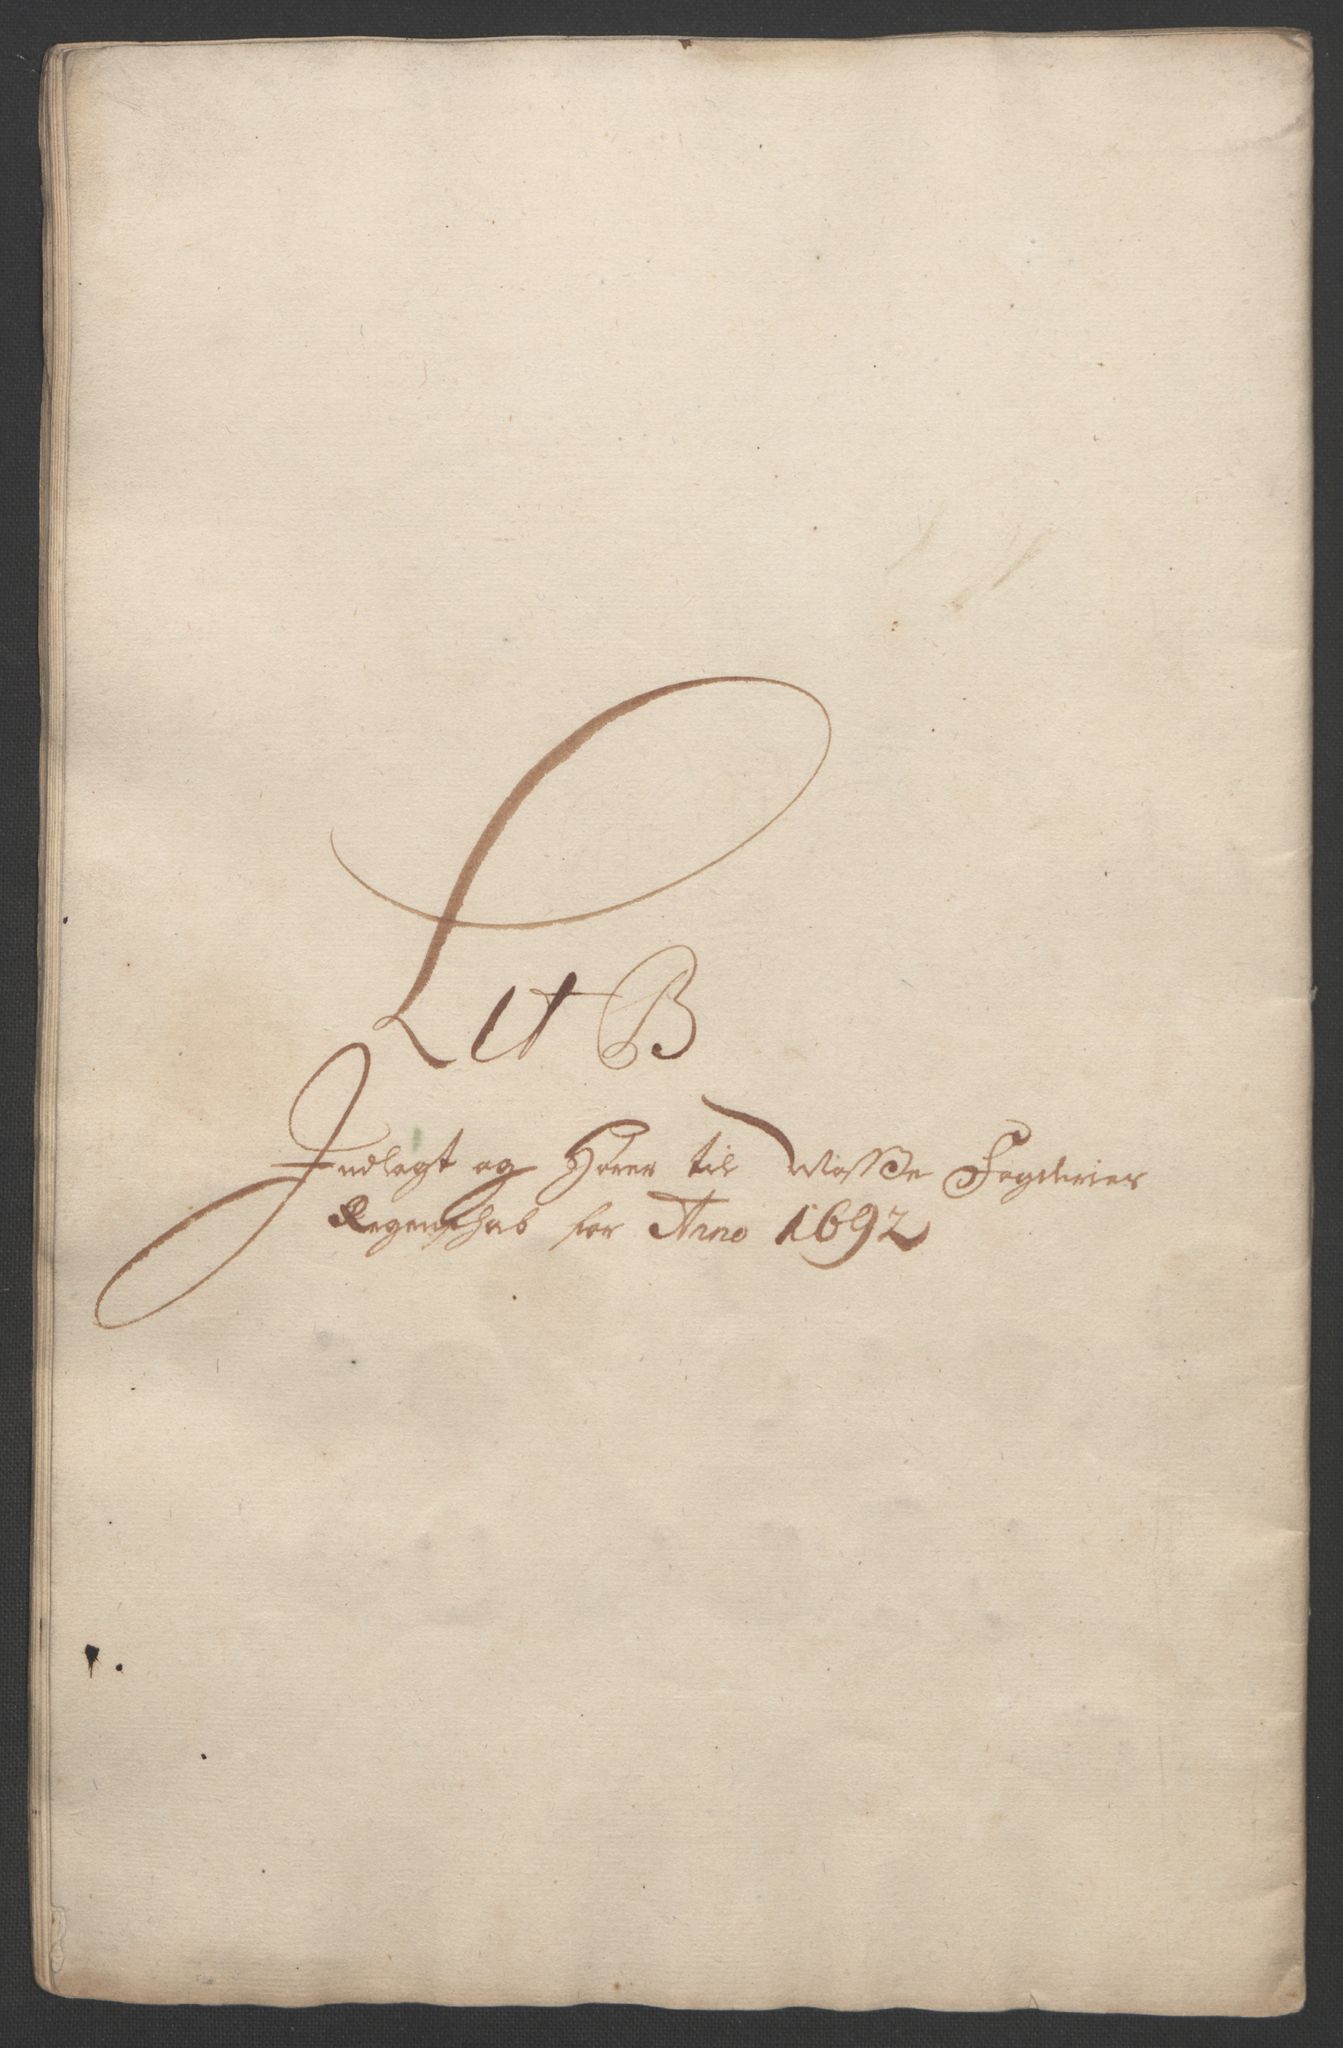 Lit B
Indlagt og Hører til Mosse Fogderier
Regenschab for Anno 1692